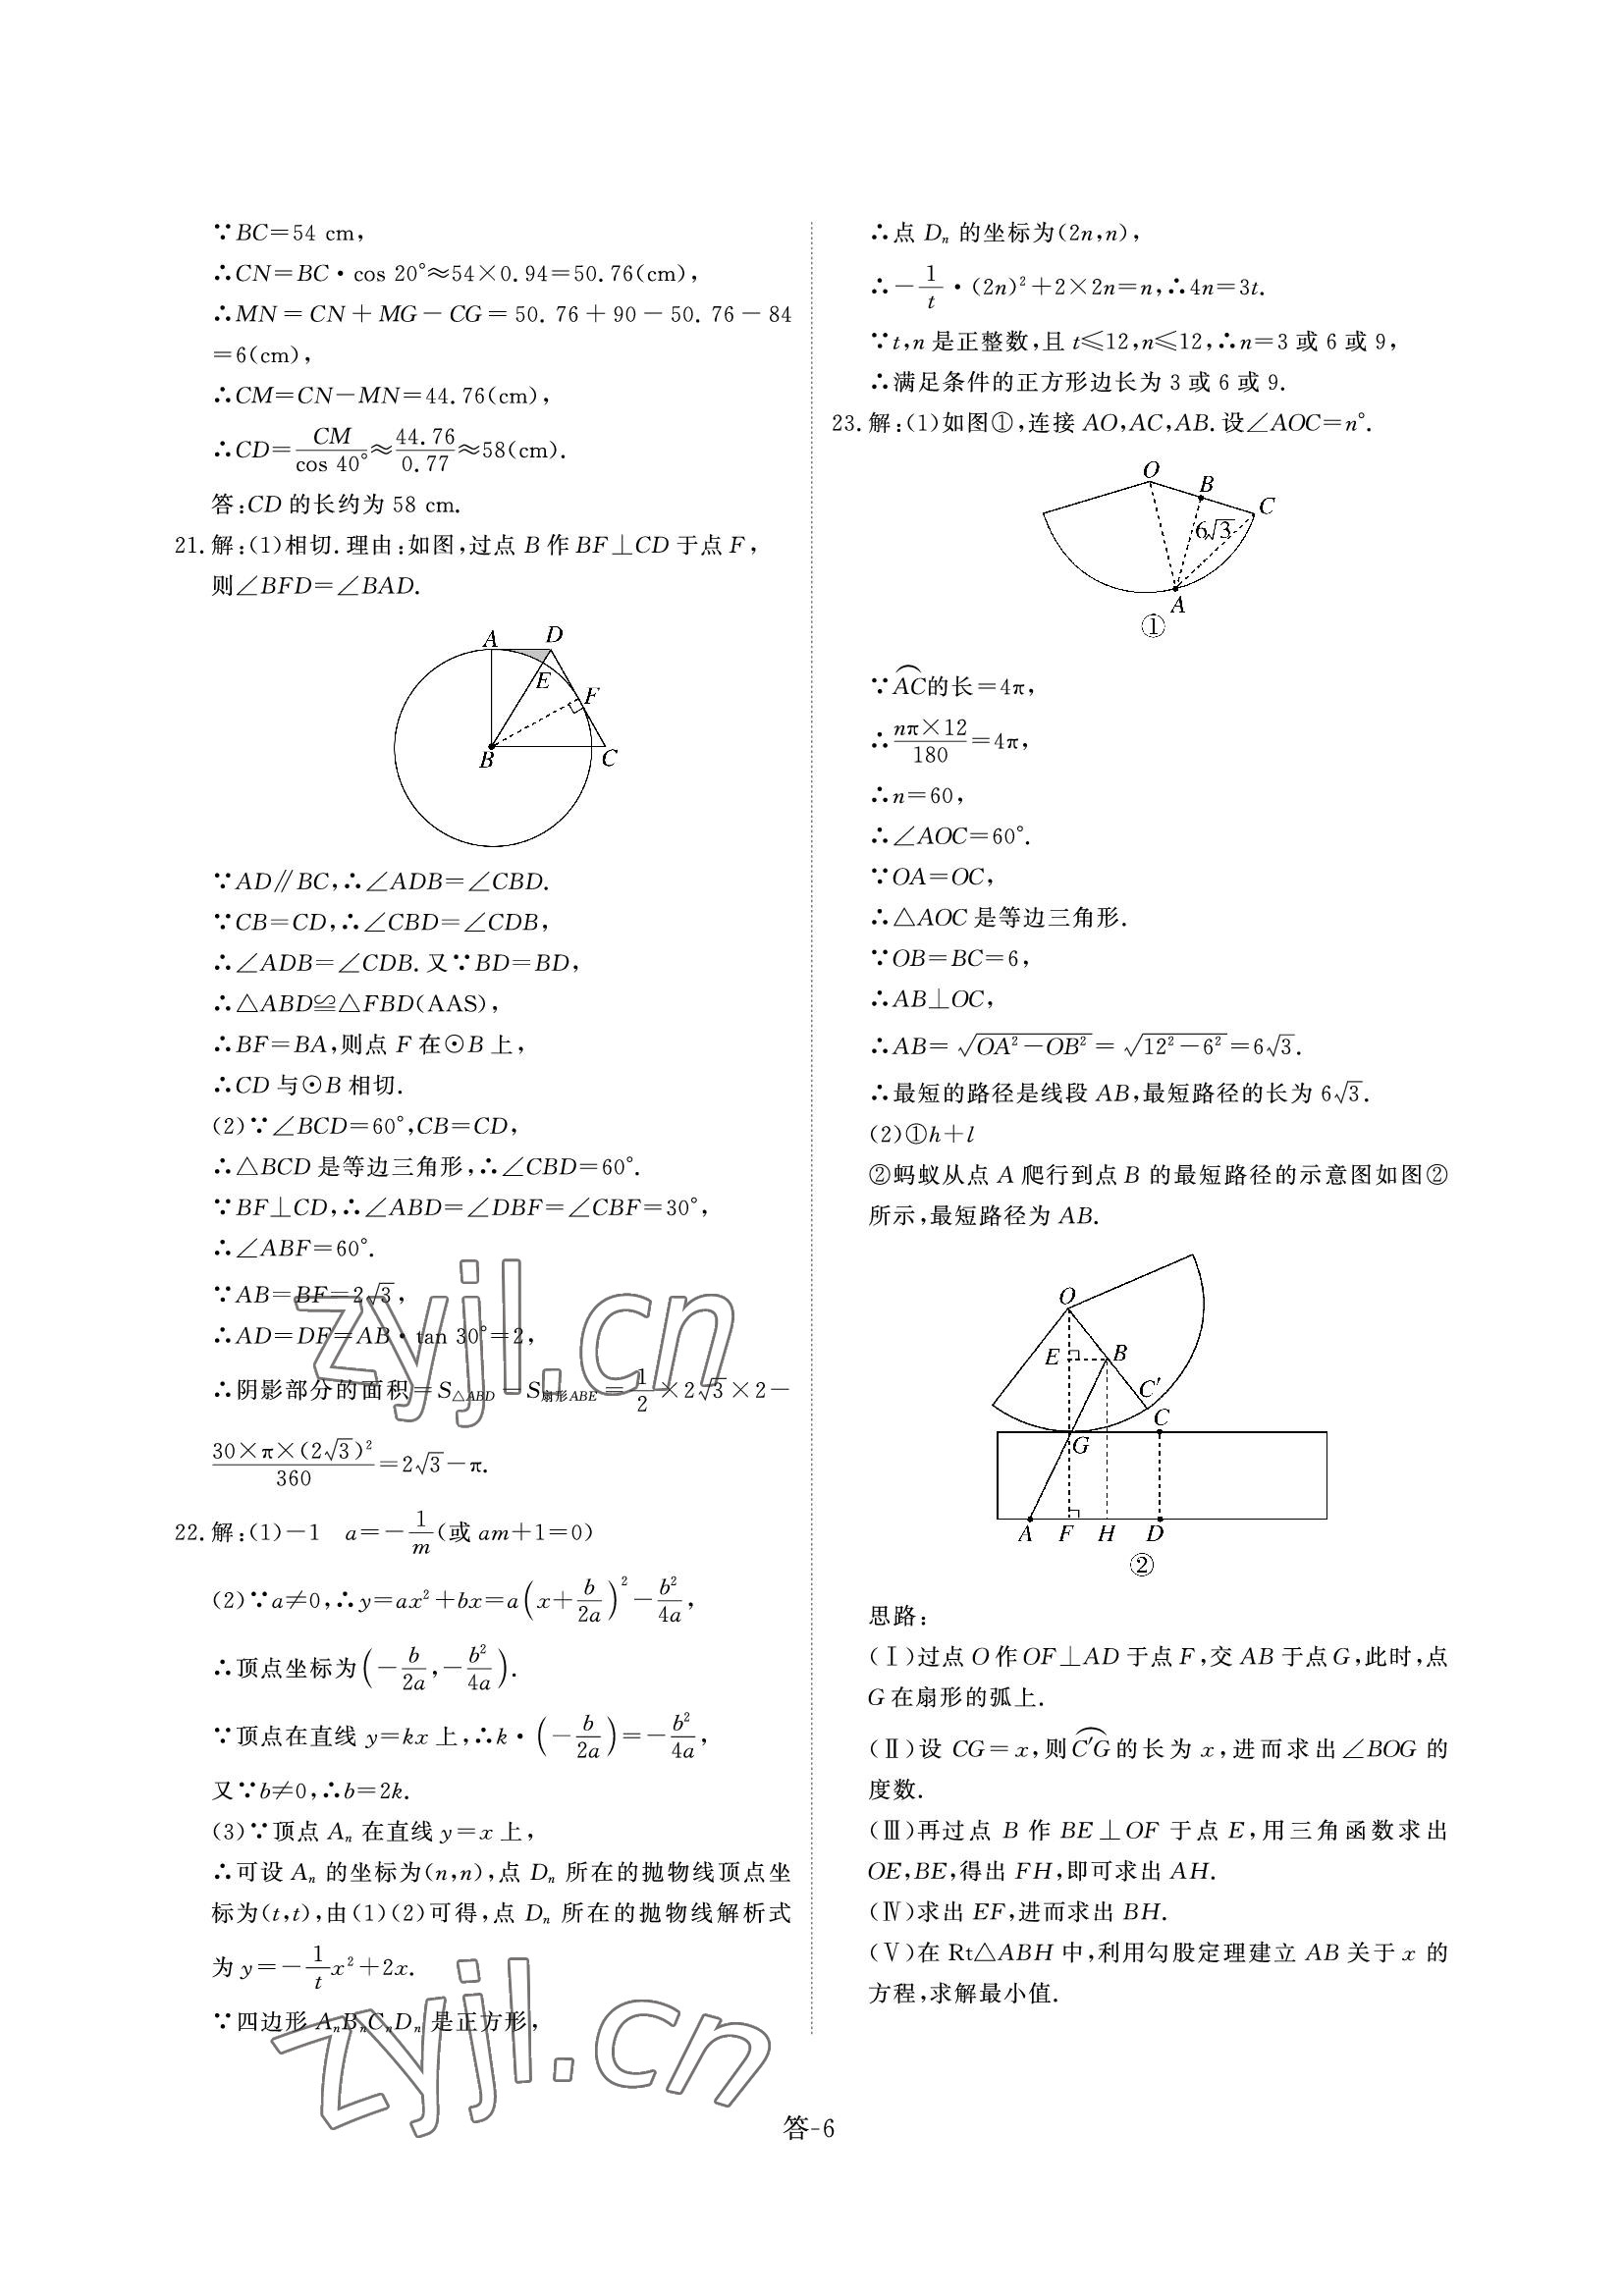 ∵BC=54 cm,
∴CN=BC·cos 20°≈54×0.94=50.76(cm),
∴MN=CN+MG-CG=50.76+90-50.76-84
=6(cm),
∴CM=CN-MN=44.76(cm),
∴CD=CM/cos 40°≈44.76/0.77≈58(cm).
答:CD的长约为58 cm.
21.解:(1)相切.理由:如图,过点B作BF⊥CD于点F,
则∠BFD=∠BAD.
A D
E F
B C
∵AD∥BC,∴∠ADB=∠CBD.
∵CB=CD,∴∠CBD=∠CDB,
∴∠ADB=∠CDB.又∵BD=BD,
∴△ABD≌△FBD(AAS),
∴BF=BA,则点F在⊙B上,
∴CD与⊙B相切.
(2)∵∠BCD=60°,CB=CD,
∴△BCD是等边三角形,∴∠CBD=60°.
∵BF⊥CD,∴∠ABD=∠DBF=∠CBF=30°,
∴∠ABF=60°.
∵AB=BF=2√3,
∴AD=DF=AB·tan 30°=2,
∴阴影部分的面积=S△ABD-S扇形ABE=1/2×2√3×2-
30×π×(2√3)²/360=2√3-π.
22.解:(1)-1 a=-1/m(或am+1=0)
(2)∵a≠0,∴y=ax²+bx=a(x+b/2a)²-b²/4a,
∴顶点坐标为(-b/2a,-b²/4a).
∵顶点在直线y=kx上,∴k·(-b/2a)=-b²/4a,
又∵b≠0,∴b=2k.
(3)∵顶点Aₙ在直线y=x上,
∴可设Aₙ的坐标为(n,n),点Dₙ所在的抛物线顶点坐
标为(t,t),由(1)(2)可得,点Dₙ所在的抛物线解析式
为y=-1/t x²+2x.
∵四边形AₙBₙCₙDₙ是正方形,
∴点Dₙ的坐标为(2n,n),
∴-1/t·(2n)²+2×2n=n,∴4n=3t.
∵t,n是正整数,且t≤12,n≤12,∴n=3或6或9,
∴满足条件的正方形边长为3或6或9.
23.解:(1)如图①,连接AO,AC,AB.设∠AOC=n°.
O
B
C
6√3
A
①
∵⌒AC的长=4π,
∴nπ×12/180=4π,
∴n=60,
∴∠AOC=60°.
∵OA=OC,
∴△AOC是等边三角形.
∵OB=BC=6,
∴AB⊥OC,
∴AB=√(OA²-OB²)=√(12²-6²)=6√3.
∴最短的路径是线段AB,最短路径的长为6√3.
(2)①h+l
②蚂蚁从点A爬行到点B的最短路径的示意图如图②
所示,最短路径为AB.
O
E B
C′
C
G
A F H D
②
思路:
(Ⅰ)过点O作OF⊥AD于点F,交AB于点G,此时,点
G在扇形的弧上.
(Ⅱ)设CG=x,则⌒C′G的长为x,进而求出∠BOG的
度数.
(Ⅲ)再过点B作BE⊥OF于点E,用三角函数求出
OE,BE,得出FH,即可求出AH.
(Ⅳ)求出EF,进而求出BH.
(Ⅴ)在Rt△ABH中,利用勾股定理建立AB关于x的
方程,求解最小值.
zyjl.cn
zyjl.cn
答-6